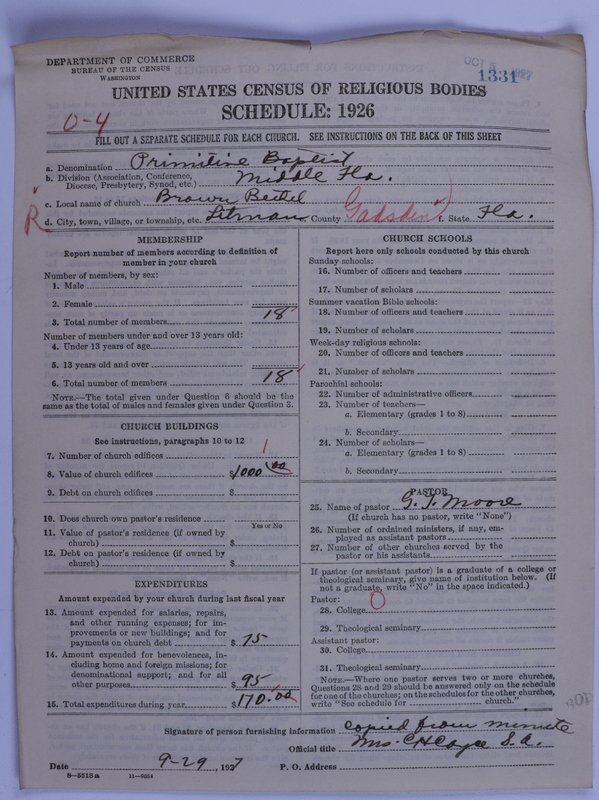 DEPARTMENT OF COMMERCE
BUREAU OF THE CENSUS
WASHINGTON
OCT 5 1927
1331
UNITED STATES CENSUS OF RELIGIOUS BODIES
SCHEDULE: 1926
0-4
FILL OUT A SEPARATE SCHEDULE FOR EACH CHURCH. SEE INSTRUCTIONS ON THE BACK OF THIS SHEET
a. Denomination Primitive Baptist
b. Division (Association, Conference, Diocese, Presbytery, Synod, etc.) Middle Fla.
c. Local name of church Brown Bethel
R d. City, town, village, or township, etc. Litman County Gadsden f. State Fla.
MEMBERSHIP
Report number of members according to definition of
member in your church
Number of members, by sex:
1. Male
2. Female
3. Total number of members 18
Number of members under and over 13 years old:
4. Under 13 years of age
5. 13 years old and over
6. Total number of members 18
NOTE.—The total given under Question 6 should be the
same as the total of males and females given under Question 3.
CHURCH BUILDINGS
See instructions, paragraphs 10 to 12
7. Number of church edifices 1
8. Value of church edifices $1000 00
9. Debt on church edifices $
10. Does church own pastor's residence
Yes or No
11. Value of pastor's residence (if owned by
church) $
12. Debt on pastor's residence (if owned by
church) $
EXPENDITURES
Amount expended by your church during last fiscal year
13. Amount expended for salaries, repairs,
and other running expenses; for im-
provements or new buildings; and for
payments on church debt $75
14. Amount expended for benevolences, in-
cluding home and foreign missions; for
denominational support; and for all
other purposes $95
15. Total expenditures during year $170.00
CHURCH SCHOOLS
Report here only schools conducted by this church
Sunday schools:
16. Number of officers and teachers
17. Number of scholars
Summer vacation Bible schools:
18. Number of officers and teachers
19. Number of scholars
Week-day religious schools:
20. Number of officers and teachers
21. Number of scholars
Parochial schools:
22. Number of administrative officers
23. Number of teachers—
a. Elementary (grades 1 to 8)
b. Secondary
24. Number of scholars—
a. Elementary (grades 1 to 8)
b. Secondary
PASTOR
25. Name of pastor G. T. Moore
(If church has no pastor, write "None")
26. Number of ordained ministers, if any, em-
ployed as assistant pastors
27. Number of other churches served by the
pastor or his assistants
If pastor (or assistant pastor) is a graduate of a college or
theological seminary, give name of institution below. (If
not a graduate, write "No" in the space indicated.)
Pastor:
28. College 0
29. Theological seminary
Assistant pastor:
30. College
31. Theological seminary
NOTE.—Where one pastor serves two or more churches,
Questions 28 and 29 should be answered only on the schedule
for one of the churches; on the schedules for the other churches,
write "See schedule for church."
Signature of person furnishing information copied from minute
Official title Mrs. C H S.A.
Date 9-29 1927 P. O. Address
11—9554